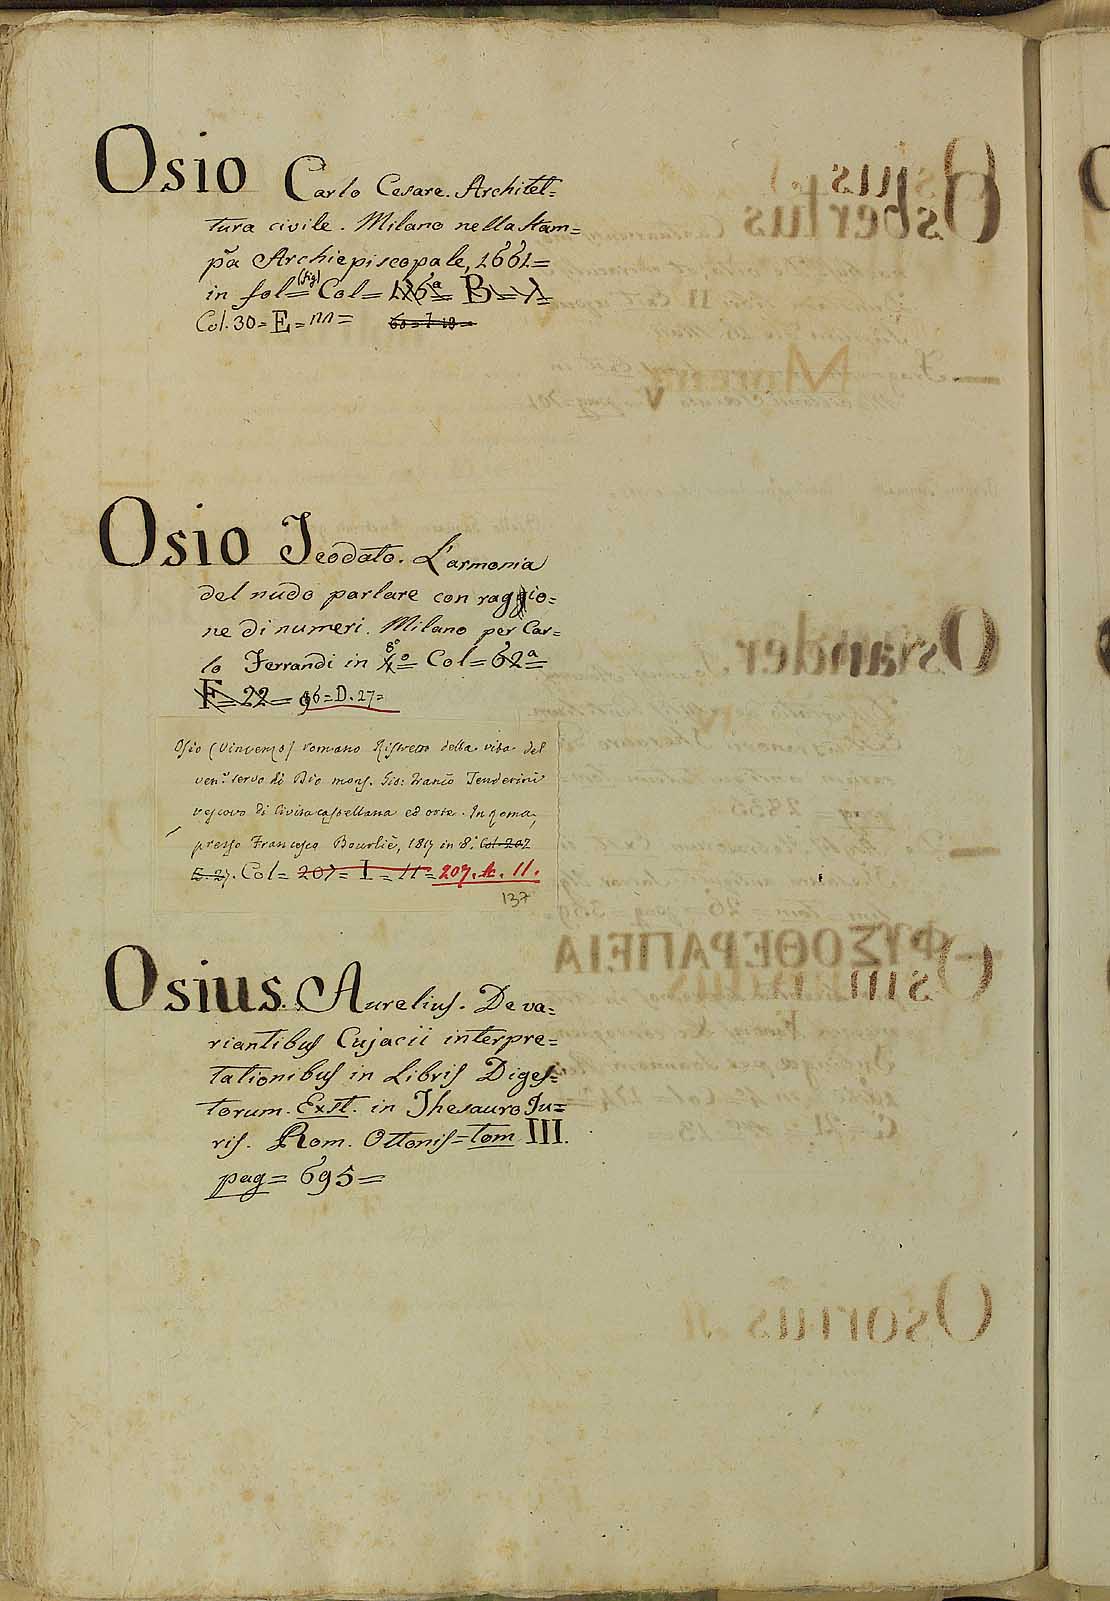 Osio Carlo Cesare. Architet=
tura civile. Milano nella stam=
pa Archiepiscopale, 1661=
in fol= (fig) Col= 116ª= B= λ=
Col. 30= E= 11=
Osio Teodato. L'armonia
del nudo parlare con raggio=
ne di numeri. Milano per Car=
lo Ferrandi in 8º= Col= 62ª=
F= 22= 96= D. 27=
Osio (Vincenzo) romano Ristretto della vita del
ven.e servo di Dio mons. Gio: Franco Tenderini
vescovo di Civitacastellana ed orte. In Roma,
presso Francesco Bourliè, 1817 in 8.º Col. 207
E. 27. Col= 207= I= 11= 207. k. 11.
137
Osius. Aurelius. De va=
riantibus Cujacii interpre=
tationibus in Libris Diges=
torum. Exst. in Thesauro Ju=
ris. Rom. Ottonis= tom III.
pag= 695=